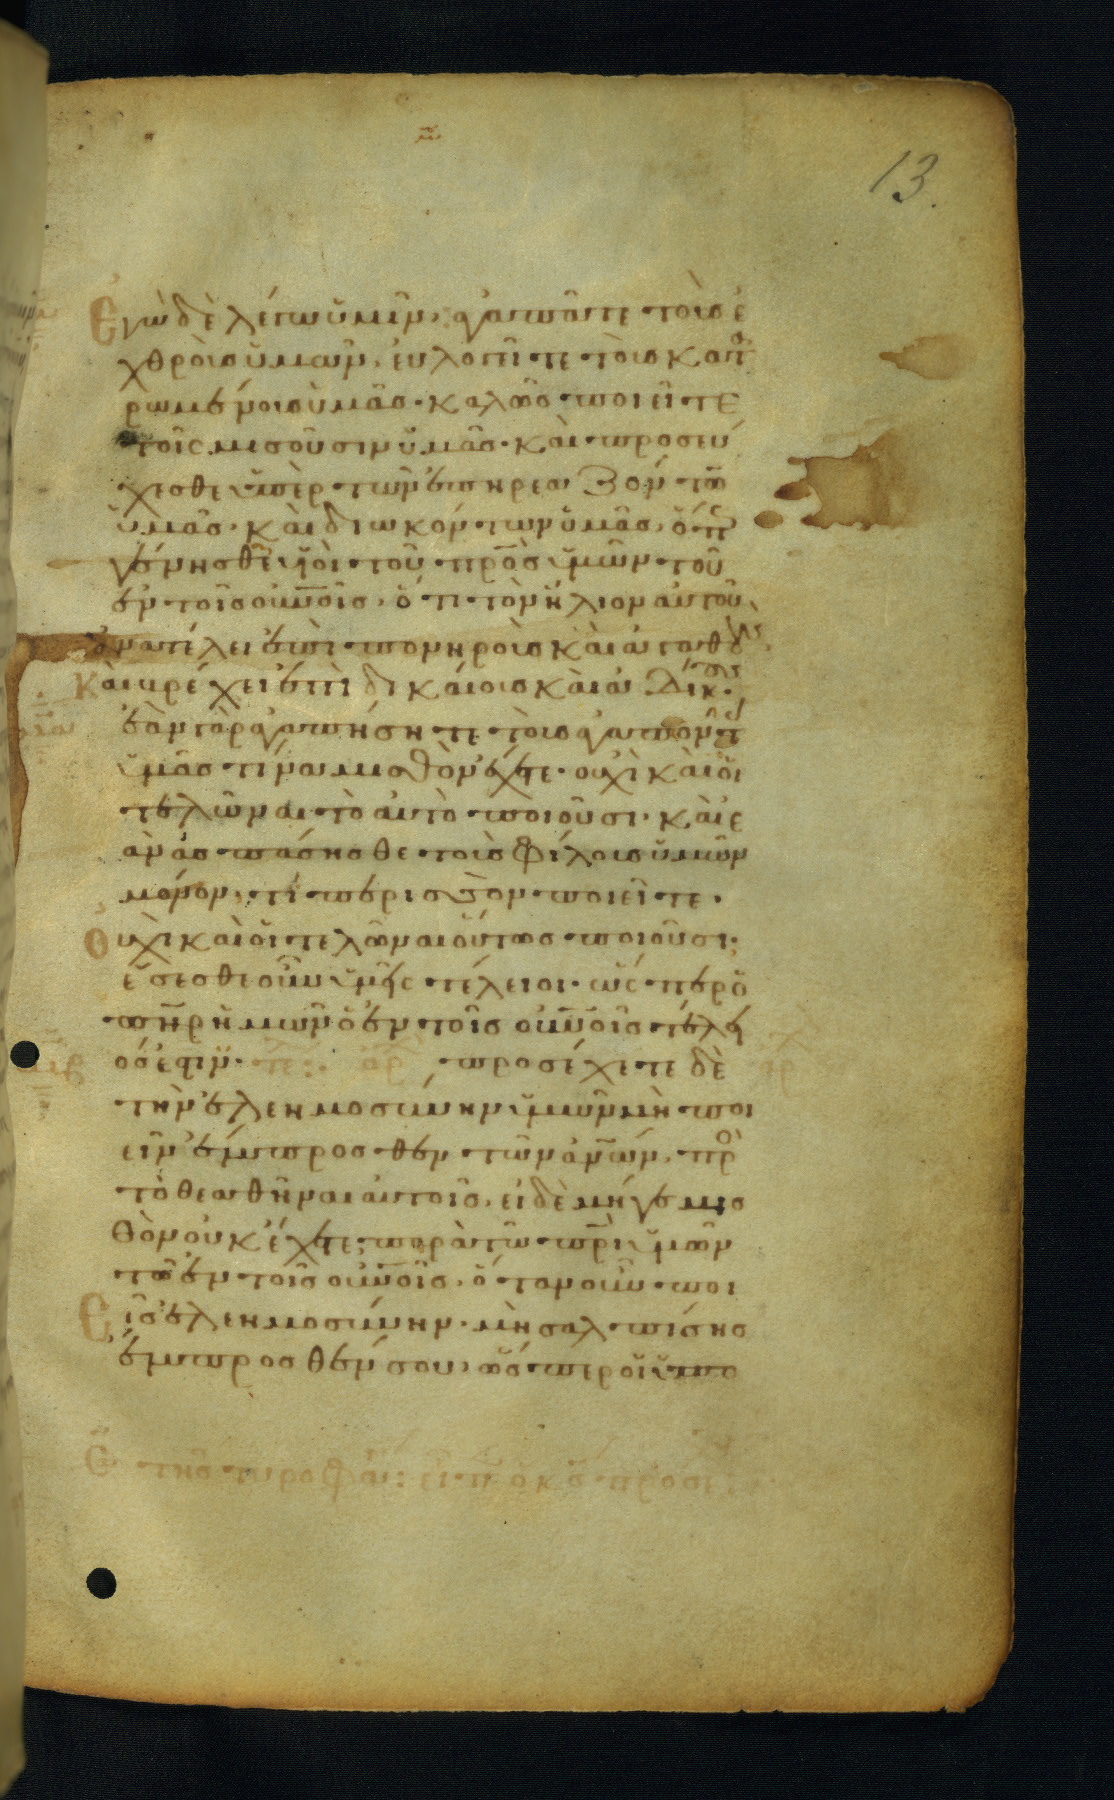 13.
Ἐγὼ δὲ λέγω ὑμῖν, ἀγαπᾶτε τοὺς ἐ
χθροὺς ὑμῶν, εὐλογεῖτε τοὺς κατ
ρωμένους ὑμᾶς. καλῶς ποιεῖτε
τοῖς μισοῦσιν ὑμᾶς. καὶ προσεύ
χεσθε ὑπὲρ τῶν ἐπηρεαζόντων
ὑμᾶς. καὶ διωκόντων ὑμᾶς, ὅπ
γένησθε υἱοὶ τοῦ π̅ρ̅ο̅ς ὑμῶν τοῦ
ἐν τοῖς οὐν̅οῖς, ὅτι τὸν ἥλιον αὐτοῦ
ἀνατέλει ἐπὶ πονηροὺς καὶ ἀγαθοὺς
Καὶ βρέχει ἐπὶ δικαίους καὶ ἀδίκους.
ἐὰν γὰρ ἀγαπήσητε τοὺς ἀγαπῶντ
ὑμᾶς τίνα μισθὸν ἔχετε. οὐχὶ καὶ οἱ
τελῶναι τὸ αὐτὸ ποιοῦσι. καὶ ἐ
ὰν ἀσπάσησθε τοὺς φίλους ὑμῶν
μόνον, τί περισσὸν ποιεῖτε.
Οὐχὶ καὶ οἱ τελῶναι οὕτως ποιοῦσι.
ἔσεσθε οὖν ὑμεῖς τέλειοι. ὥσπερ ὁ
π̅ηρ ἡμῶν ὁ ἐν τοῖς οὐν̅οῖς τέλει
ός ἐστιν. προσέχετε δὲ
τὴν ἐλεημοσύνην ὑμῶν μὴ ποι
εῖν ἔμπροσθεν τῶν ἀν̅ων, πρ
τὸ θεαθῆναι αὐτοῖς, εἰ δὲ μήγε μισ
θὸν οὐκ ἔχετε παρὰ τῶ π̅ρ̅ι ὑμῶν
τῶ ἐν τοῖς οὐν̅οῖς, ὅταν οὖν ποι
Εῖς ἐλεημοσύνην. μὴ σαλπίσης
ἔμπροσθέν σου, ὥσπερ οἱ ὑπο